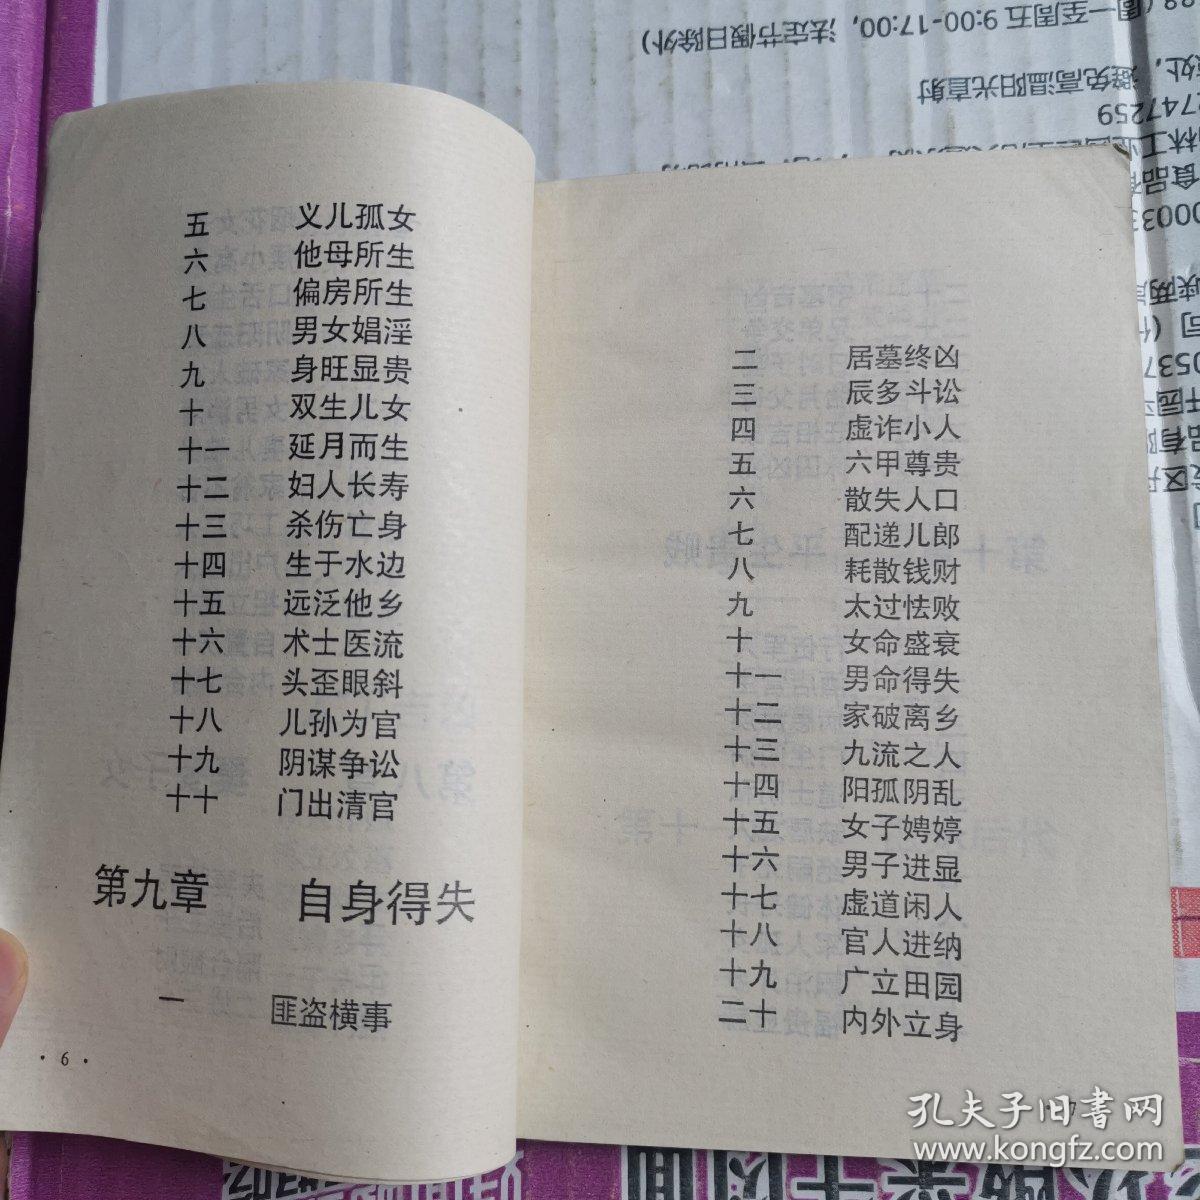 五 义儿孤女
六 他母所生
七 偏房所生
八 男女娼淫
九 身旺显贵
十 双生儿女
十一 延月而生
十二 妇人长寿
十三 杀伤亡身
十四 生于水边
十五 远泛他乡
十六 术士医流
十七 头歪眼斜
十八 儿孙为官
十九 阴谋争讼
十十 门出清官
第九章 自身得失
一 匪盗横事
·6·
二 居墓终凶
三 辰多斗讼
四 虚诈小人
五 六甲尊贵
六 散失人口
七 配递儿郎
八 耗散钱财
九 太过怯败
十 女命盛衰
十一 男命得失
十二 家破离乡
十三 九流之人
十四 阳孤阴乱
十五 女子娉婷
十六 男子进显
十七 虚道闲人
十八 官人进纳
十九 广立田园
二十 内外立身
7
一至周五 9:00-17:00，法定节假日除外)
避免高温阳光直射
747259
孔夫子旧书网
www.kongfz.com